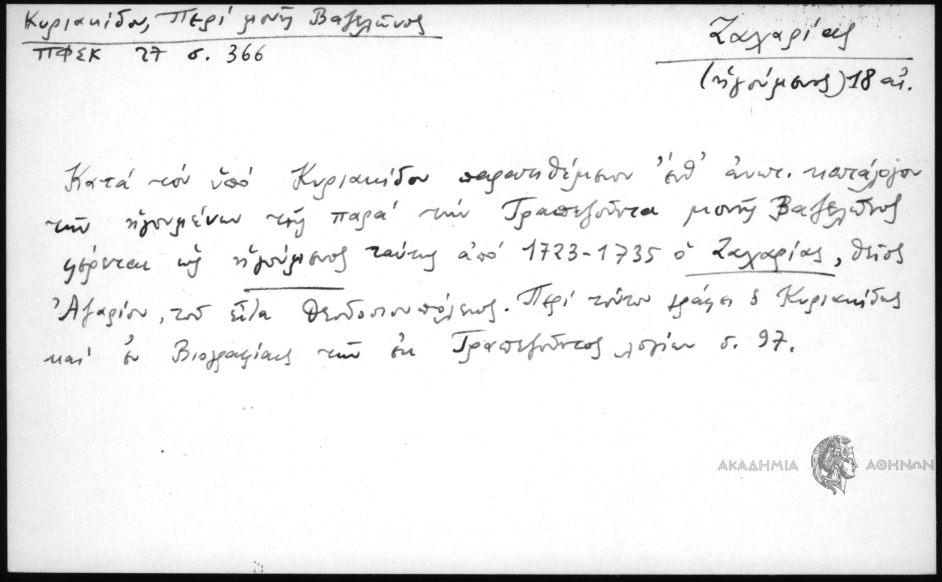 Κυριακίδου, Περί μονῆς Βαζελῶνος
ΠΦΣΚ 27 σ. 366
Ζαχαρίας
(ἡγούμενος) 18 αἰ.
Κατά τόν ὑπό Κυριακίδου παρατιθέμενον ἐνθ' ἀνωτ. κατάλογον
τῶν ἡγουμένων τῆς παρά τήν Τραπεζοῦντα μονῆς Βαζελῶνος
φέρεται ὡς ἡγούμενος ταύτης ἀπό 1723-1735 ὁ Ζαχαρίας, θεῖος
τοῦ εἶτα Θεοδοσιουπόλεως. Περί τούτου γράφει ὁ Κυριακίδης
καί ἐν Βιογραφίαις τῶν ἐκ Τραπεζοῦντος λογίων σ. 97.
ΑΚΑΔΗΜΙΑ ΑΘΗΝΩΝ